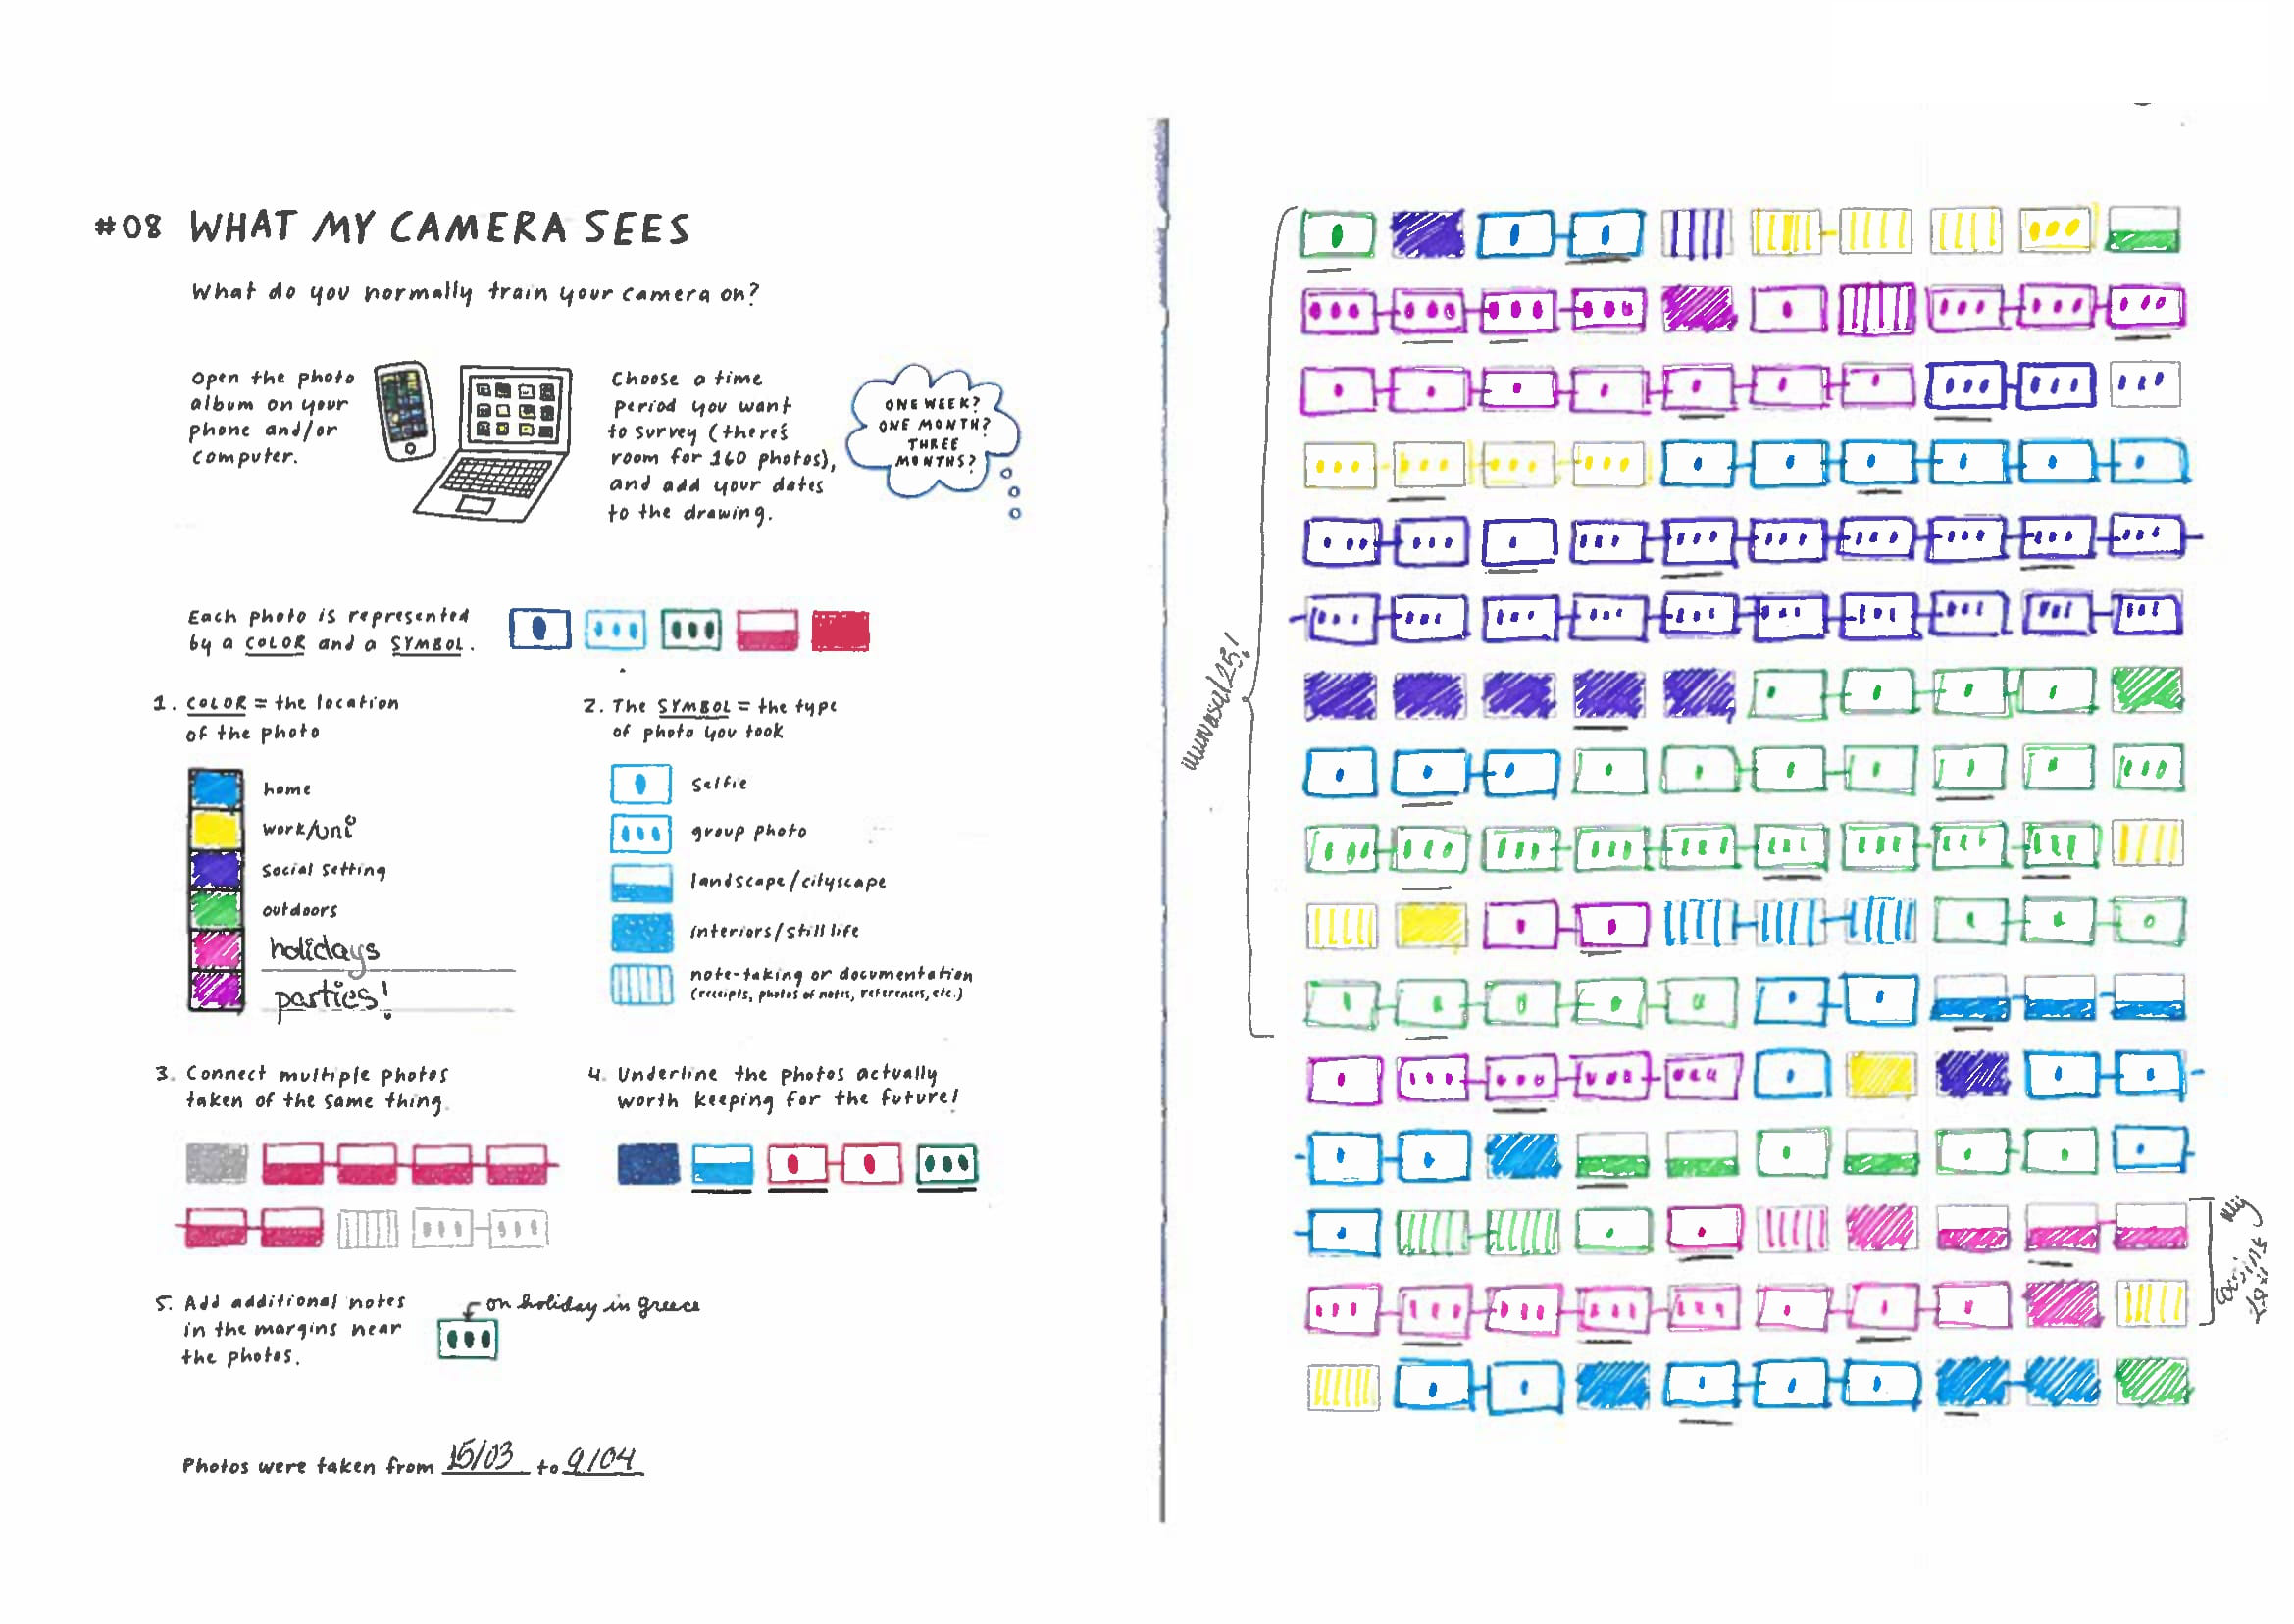 #08 WHAT MY CAMERA SEES
What do you normally train your camera on?
Open the photo
album on your
phone and/or
computer.
Choose a time
period you want
to survey (there's
room for 160 photos),
and add your dates
to the drawing.
ONE WEEK?
ONE MONTH?
THREE
MONTHS?
Each photo is represented
by a COLOR and a SYMBOL.
1. COLOR = the location
of the photo
home
work/uni
social setting
outdoors
holidays
parties!
2. The SYMBOL = the type
of photo you took
selfie
group photo
landscape/cityscape
interiors/still life
note-taking or documentation
(receipts, photos of notes, references, etc.)
3. Connect multiple photos
taken of the same thing.
4. Underline the photos actually
worth keeping for the future!
5. Add additional notes
in the margins near
the photos.
on holiday in greece
Photos were taken from 15/03 to 9/04